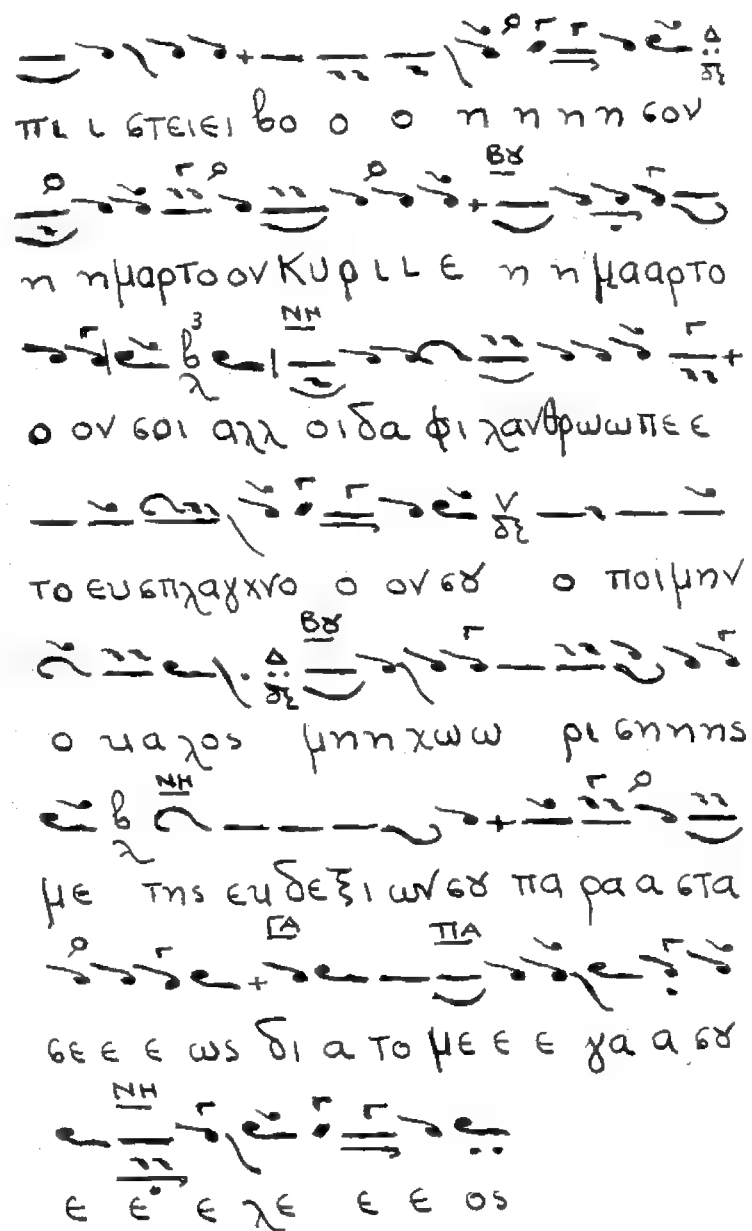 πι ι στειει βο ο ο η η η η σον
Βȣ
η ημαρτοον Κυρι ι ε η η μααρτο
ΝΗ
ο ον σοι αλλ οιδα φι λανθρωωπε ε
το ευσπλαγχνο ο ον σȣ ο ποιμην
Βȣ
ο καλος μηη χωω ρι σηηης
ΝΗ
με της εκ δεξι ων σȣ πα ρα α στα
ΓΑ ΠΑ
σε ε ε ως δι α το με ε ε γα α σȣ
ΝΗ
ε ε ε λε ε ε ος